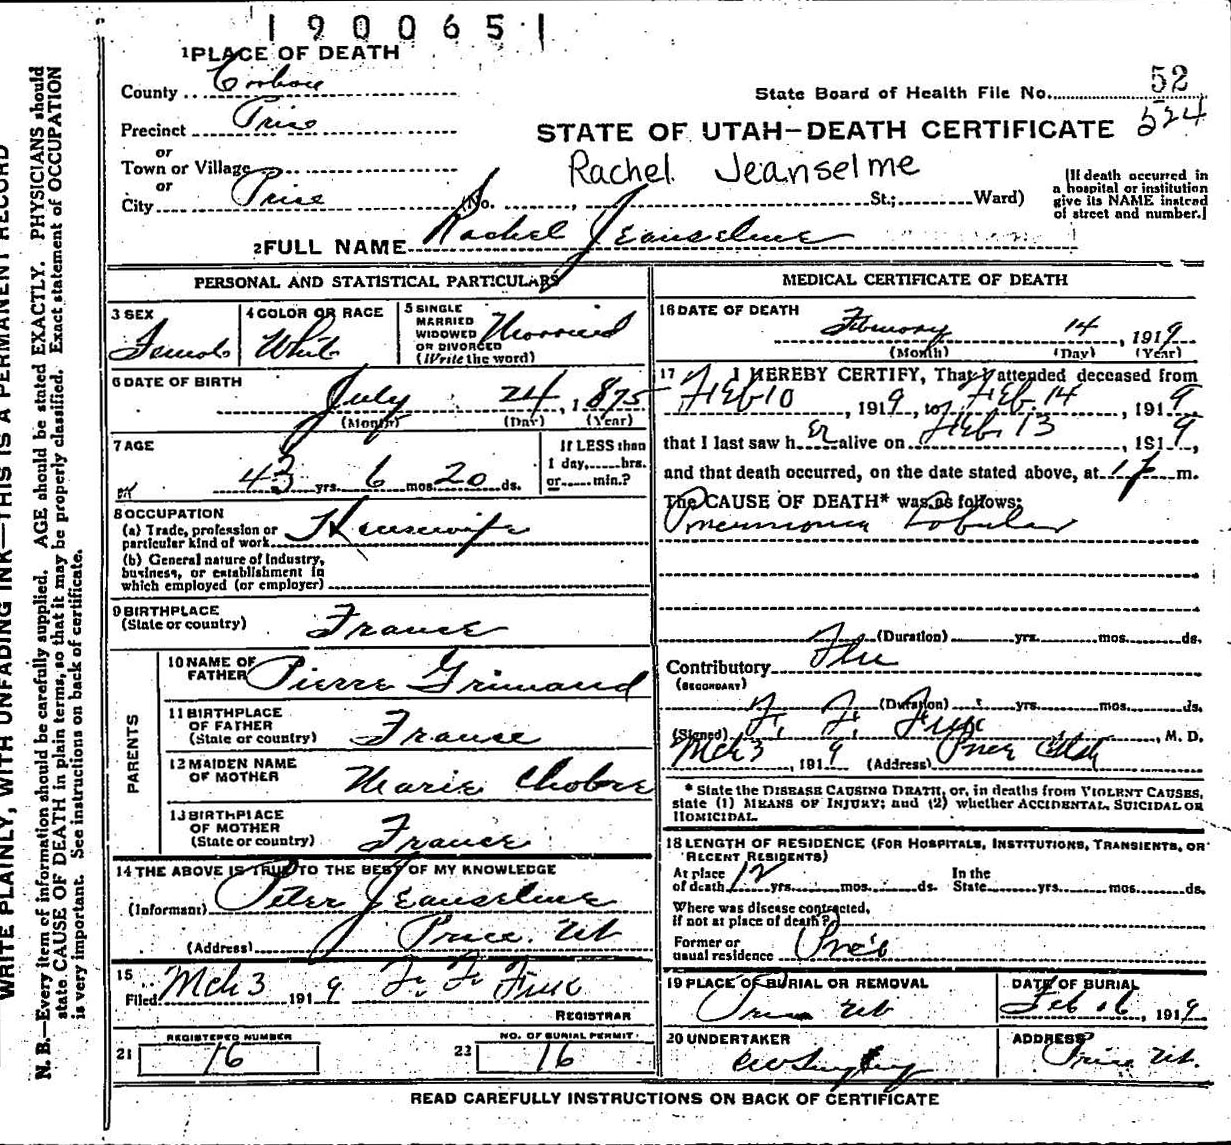 190065
1 PLACE OF DEATH
County Carbon
State Board of Health File No. 52
Precinct Price
524
STATE OF UTAH—DEATH CERTIFICATE
or
Town or Village
Rachel Jeanselme
or
City Price (No. , St.; Ward)
[If death occurred in
a hospital or institution
give its NAME instead
of street and number.]
2 FULL NAME Rachel Jeanselme
PERSONAL AND STATISTICAL PARTICULARS
3 SEX
Female
4 COLOR OR RACE
White
5 SINGLE
MARRIED
WIDOWED
OR DIVORCED
(Write the word)
Married
6 DATE OF BIRTH
July 24, 1875
(Month) (Day) (Year)
7 AGE
43 yrs. 6 mos. 20 ds.
If LESS than
1 day, hrs.
or min.?
8 OCCUPATION
(a) Trade, profession or
particular kind of work Housewife
(b) General nature of industry,
business, or establishment in
which employed (or employer)
9 BIRTHPLACE
(State or country) France
PARENTS
10 NAME OF
FATHER Pierre Grimaud
11 BIRTHPLACE
OF FATHER
(State or country) France
12 MAIDEN NAME
OF MOTHER Marie
13 BIRTHPLACE
OF MOTHER
(State or country) France
14 THE ABOVE IS TRUE TO THE BEST OF MY KNOWLEDGE
(Informant) Peter Jeanselme
(Address) Price. Ut
15
Filed Mch 3 1919 F. F.
REGISTRAR
REGISTERED NUMBER
21 16
NO. OF BURIAL PERMIT
22 16
MEDICAL CERTIFICATE OF DEATH
16 DATE OF DEATH
February 14, 1919
(Month) (Day) (Year)
17 I HEREBY CERTIFY, That I attended deceased from
Feb 10, 1919, to Feb. 14, 1919
that I last saw her alive on Feb. 13, 1919
and that death occurred, on the date stated above, at m.
The CAUSE OF DEATH* was as follows:
Pneumonia Lobular
(Duration) yrs. mos. ds.
Contributory Flu
(SECONDARY)
(Duration) yrs. mos. ds.
(Signed) F. F. , M. D.
Mch 3, 1919 (Address) Price Utah
* State the DISEASE CAUSING DEATH, or, in deaths from VIOLENT CAUSES,
state (1) MEANS OF INJURY; and (2) whether ACCIDENTAL, SUICIDAL OR
HOMICIDAL.
18 LENGTH OF RESIDENCE (FOR HOSPITALS, INSTITUTIONS, TRANSIENTS, OR
RECENT RESIDENTS)
At place
of death 12 yrs. mos. ds.
In the
State yrs. mos. ds.
Where was disease contracted,
if not at place of death?
Former or
usual residence Price
19 PLACE OF BURIAL OR REMOVAL
Price Ut
DATE OF BURIAL
Feb 16, 1919
20 UNDERTAKER
ADDRESS
Price Ut.
READ CAREFULLY INSTRUCTIONS ON BACK OF CERTIFICATE
WRITE PLAINLY, WITH UNFADING INK—THIS IS A PERMANENT RECORD
N. B.—Every item of information should be carefully supplied. AGE should be stated EXACTLY. PHYSICIANS should
state CAUSE OF DEATH in plain terms, so that it may be properly classified. Exact statement of OCCUPATION
is very important. See instructions on back of certificate.